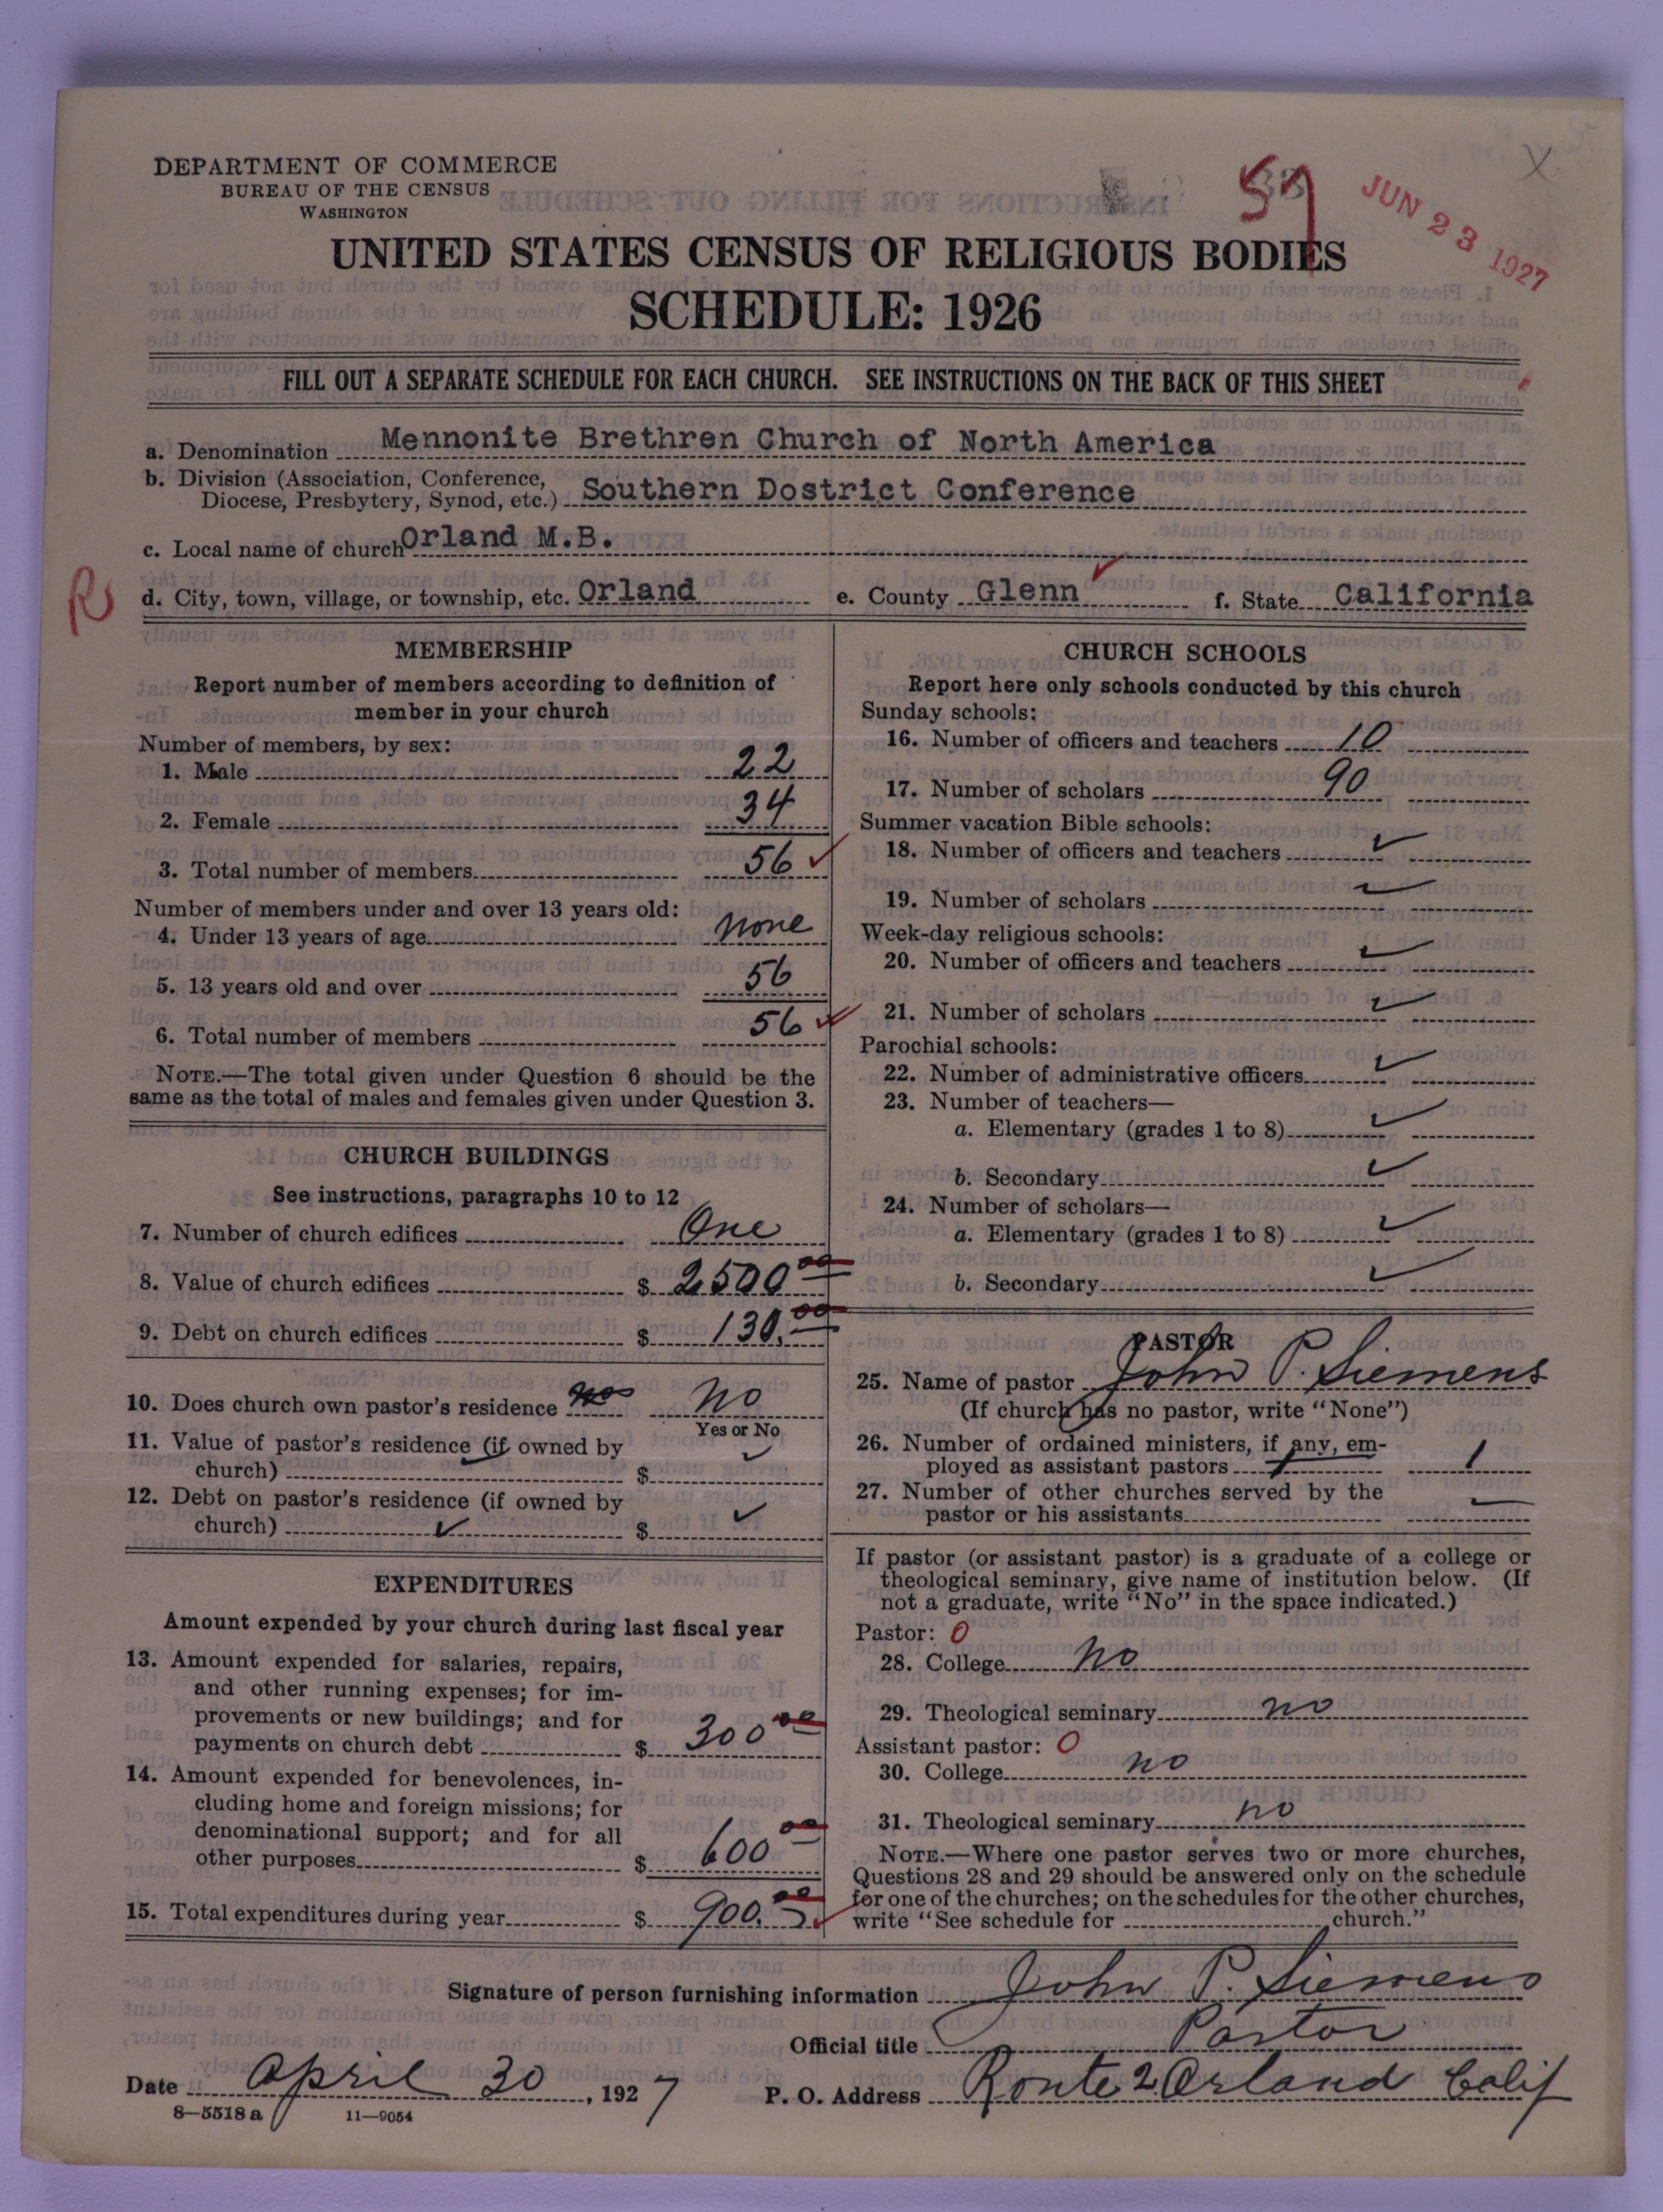 DEPARTMENT OF COMMERCE
BUREAU OF THE CENSUS
WASHINGTON
59
JUN 23 1927
X
UNITED STATES CENSUS OF RELIGIOUS BODIES
SCHEDULE: 1926
FILL OUT A SEPARATE SCHEDULE FOR EACH CHURCH. SEE INSTRUCTIONS ON THE BACK OF THIS SHEET
a. Denomination Mennonite Brethren Church of North America
b. Division (Association, Conference,
Diocese, Presbytery, Synod, etc.) Southern Dostrict Conference
c. Local name of church Orland M.B.
R
d. City, town, village, or township, etc. Orland e. County Glenn f. State California
MEMBERSHIP
Report number of members according to definition of
member in your church
Number of members, by sex:
1. Male 22
2. Female 34
3. Total number of members 56
Number of members under and over 13 years old:
4. Under 13 years of age none
5. 13 years old and over 56
6. Total number of members 56
NOTE.—The total given under Question 6 should be the
same as the total of males and females given under Question 3.
CHURCH BUILDINGS
See instructions, paragraphs 10 to 12
7. Number of church edifices One
8. Value of church edifices $ 2500 00
9. Debt on church edifices $ 130. 00
10. Does church own pastor's residence no No
Yes or No
11. Value of pastor's residence (if owned by
church) $ ✓
12. Debt on pastor's residence (if owned by
church) ✓ $ ✓
EXPENDITURES
Amount expended by your church during last fiscal year
13. Amount expended for salaries, repairs,
and other running expenses; for im-
provements or new buildings; and for
payments on church debt $ 300 00
14. Amount expended for benevolences, in-
cluding home and foreign missions; for
denominational support; and for all
other purposes $ 600 00
15. Total expenditures during year $ 900. 00
CHURCH SCHOOLS
Report here only schools conducted by this church
Sunday schools:
16. Number of officers and teachers 10
17. Number of scholars 90
Summer vacation Bible schools:
18. Number of officers and teachers ✓
19. Number of scholars ✓
Week-day religious schools:
20. Number of officers and teachers ✓
21. Number of scholars ✓
Parochial schools:
22. Number of administrative officers ✓
23. Number of teachers—
a. Elementary (grades 1 to 8) ✓
b. Secondary ✓
24. Number of scholars—
a. Elementary (grades 1 to 8) ✓
b. Secondary ✓
PASTOR
25. Name of pastor John P. Siemens
(If church has no pastor, write "None")
26. Number of ordained ministers, if any, em-
ployed as assistant pastors 1 1
27. Number of other churches served by the
pastor or his assistants —
If pastor (or assistant pastor) is a graduate of a college or
theological seminary, give name of institution below. (If
not a graduate, write "No" in the space indicated.)
Pastor: 0
28. College No
29. Theological seminary no
Assistant pastor: 0
30. College no
31. Theological seminary no
NOTE.—Where one pastor serves two or more churches,
Questions 28 and 29 should be answered only on the schedule
for one of the churches; on the schedules for the other churches,
write "See schedule for church."
Signature of person furnishing information John P. Siemens
Official title Pastor
Date April 30, 1927 P. O. Address Route 2 Orland Calif
8—5518 a 11—9054